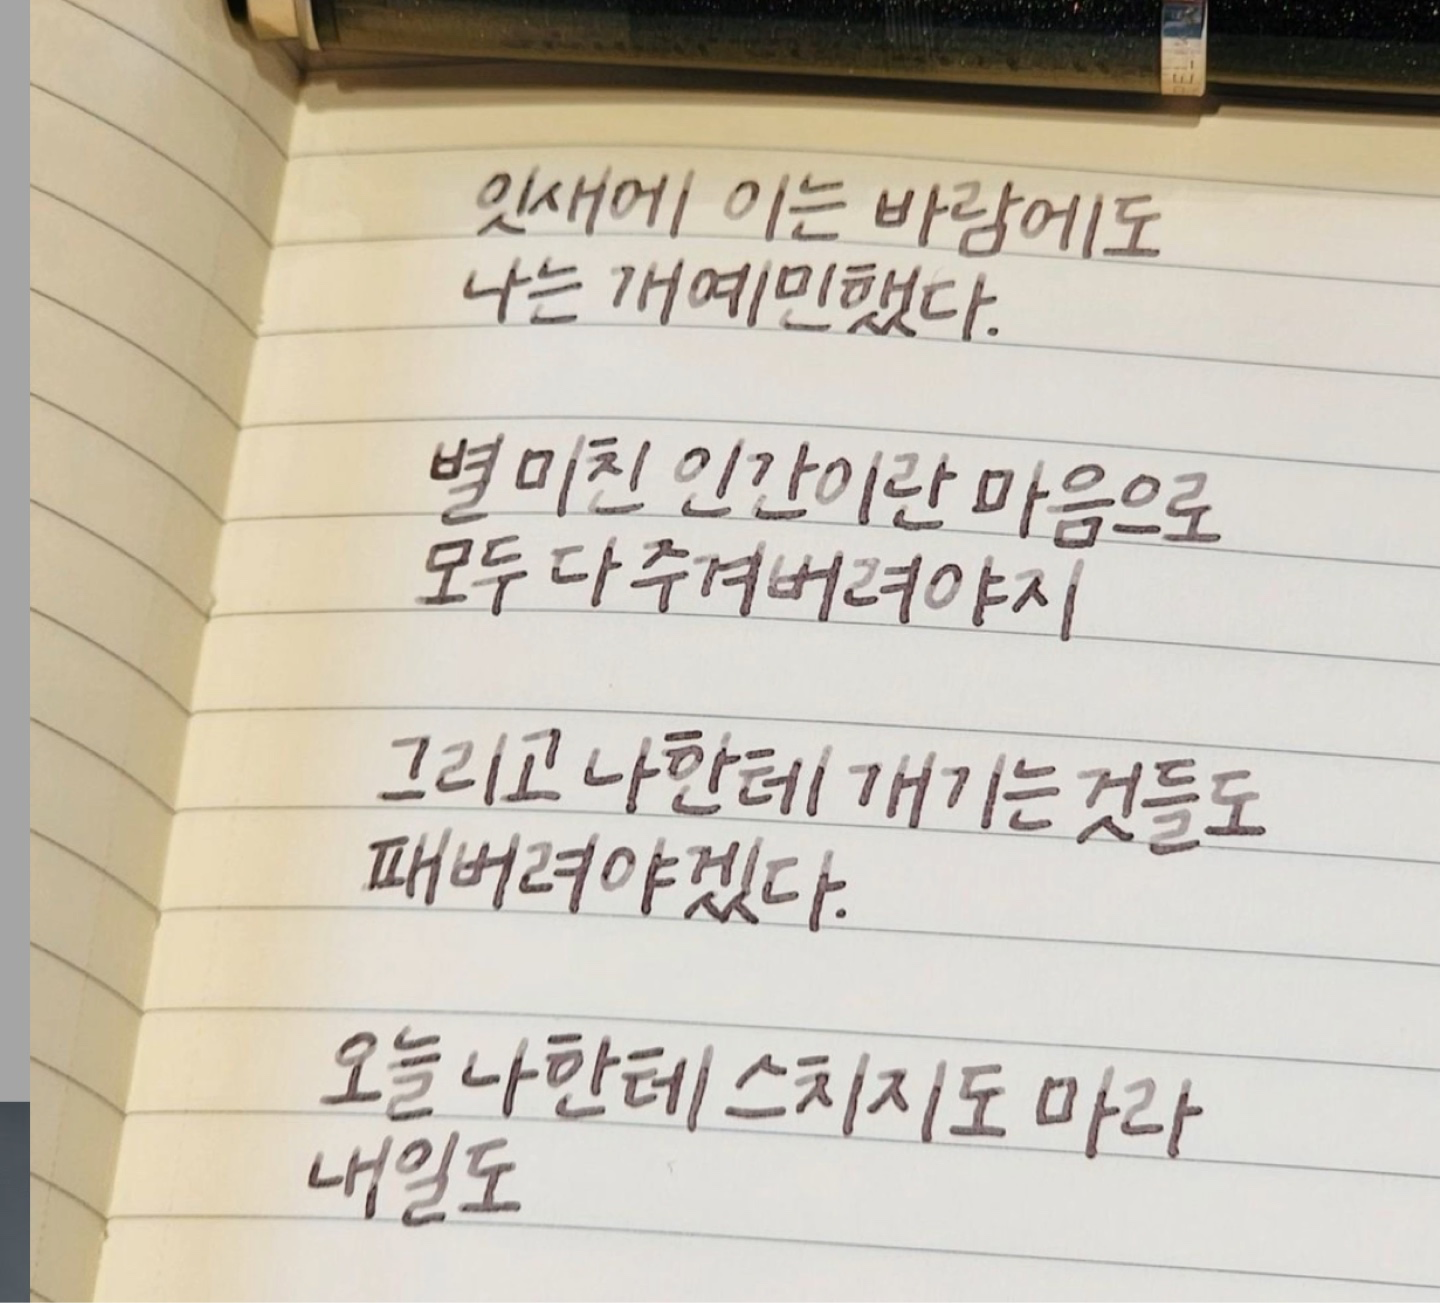 잇새에 이는 바람에도
나는 개예민했다.
별 미친 인간이란 마음으로
모두 다 주겨버려야지
그리고 나한테 개기는 것들도
패버려야겠다.
오늘 나한테 스치지도 마라
내일도